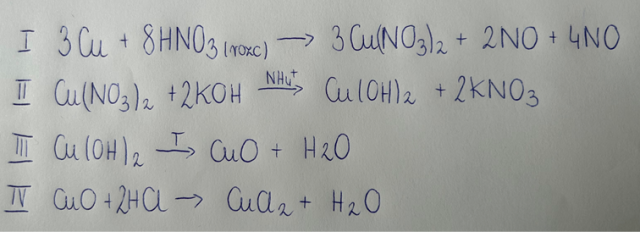 I 3Cu + 8HNO₃(rozc) → 3Cu(NO₃)₂ + 2NO + 4NO
II Cu(NO₃)₂ + 2KOH NH₄⁺→ Cu(OH)₂ + 2KNO₃
III Cu(OH)₂ T→ CuO + H₂O
IV CuO + 2HCl → CuCl₂ + H₂O